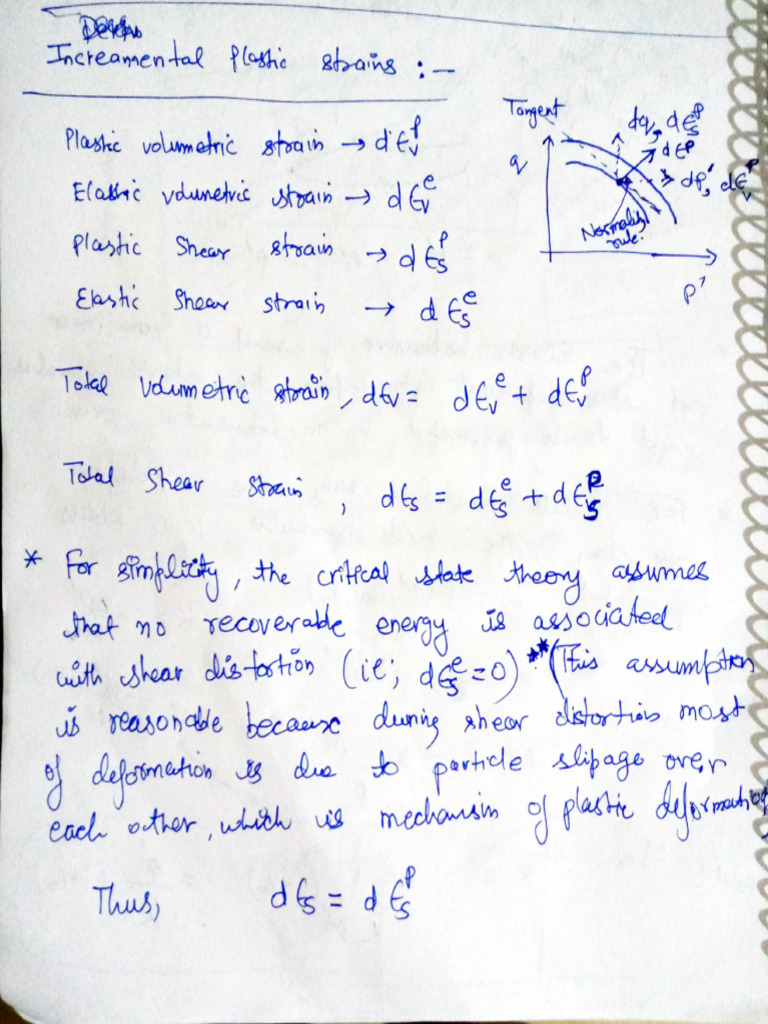 Increamental Plastic strains :—
Tangent
dq, dϵₛᵖ
dϵᵖ
q
dp', dϵᵥᵖ
Normality rule.
p'
Plastic volumetric strain → dϵᵥᵖ
Elastic volumetric strain → dϵᵥᵉ
Plastic Shear strain → dϵₛᵖ
Elastic Shear strain → dϵₛᵉ
Total volumetric strain, dϵᵥ = dϵᵥᵉ + dϵᵥᵖ
Total Shear Strain, dϵₛ = dϵₛᵉ + dϵₛᵖ
* For simplicity, the critical state theory assumes
that no recoverable energy is associated
with shear distortion (ie; dϵₛᵉ = 0) ** (This assumption
is reasonable because during shear distortion most
of deformation is due to particle slipage over
each other, which is mechanism of plastic deformation
Thus, dϵₛ = dϵₛᵖ